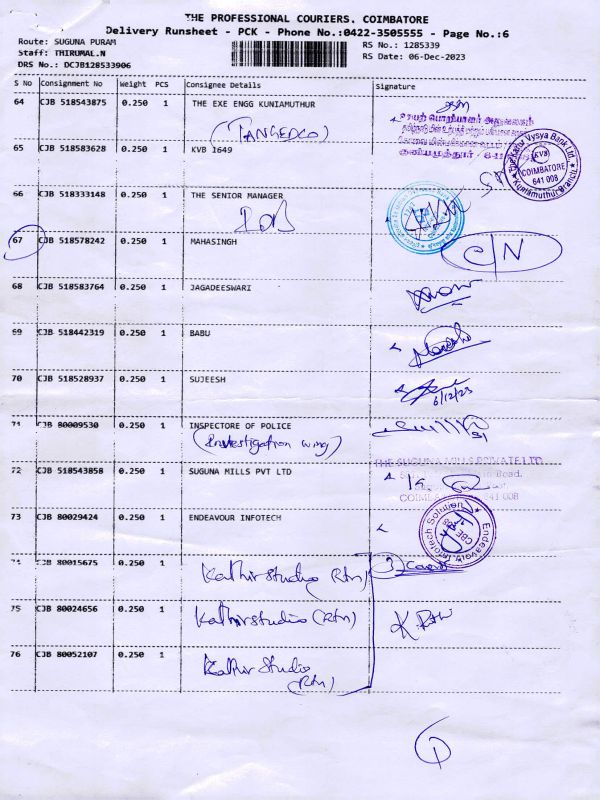 THE PROFESSIONAL COURIERS. COIMBATORE
Delivery Runsheet - PCK - Phone No.:0422-3505555 - Page No.:6
Route: SUGUNA PURAM
RS No.: 1285339
Staff: THIRUMAL.N
RS Date: 06-Dec-2023
DRS No.: DCJB128533906
S No Consignment No Weight PCS Consignee Details Signature
64 CJB 518543875 0.250 1 THE EXE ENGG KUNIAMUTHUR
(TANGEDCO)
65 CJB 518583628 0.250 1 KVB 1649
The Karur Vysya Bank Ltd.
KVB
COIMBATORE
641 008
Kuniamuthur Branch
66 CJB 518333148 0.250 1 THE SENIOR MANAGER
IOB
67 CJB 518578242 0.250 1 MAHASINGH
C/N
68 CJB 518583764 0.250 1 JAGADEESWARI
69 CJB 518442319 0.250 1 BABU
70 CJB 518528937 0.250 1 SUJEESH
6/12/23
71 CJB 80009530 0.250 1 INSPECTORE OF POLICE
(Investigation wing)
72 CJB 518543858 0.250 1 SUGUNA MILLS PVT LTD
THE SUGUNA MILLS PRIVATE LTD
Road.
COIMBATORE 641 008
73 CJB 80029424 0.250 1 ENDEAVOUR INFOTECH
Endeavour Infotech Solution
CBE
74 CJB 80015675 0.250 1 Kathir Studio (Rtn)
3
75 CJB 80024656 0.250 1 Kathir studio (Rtn)
76 CJB 80052107 0.250 1 Kathir Studio
(Rtn)